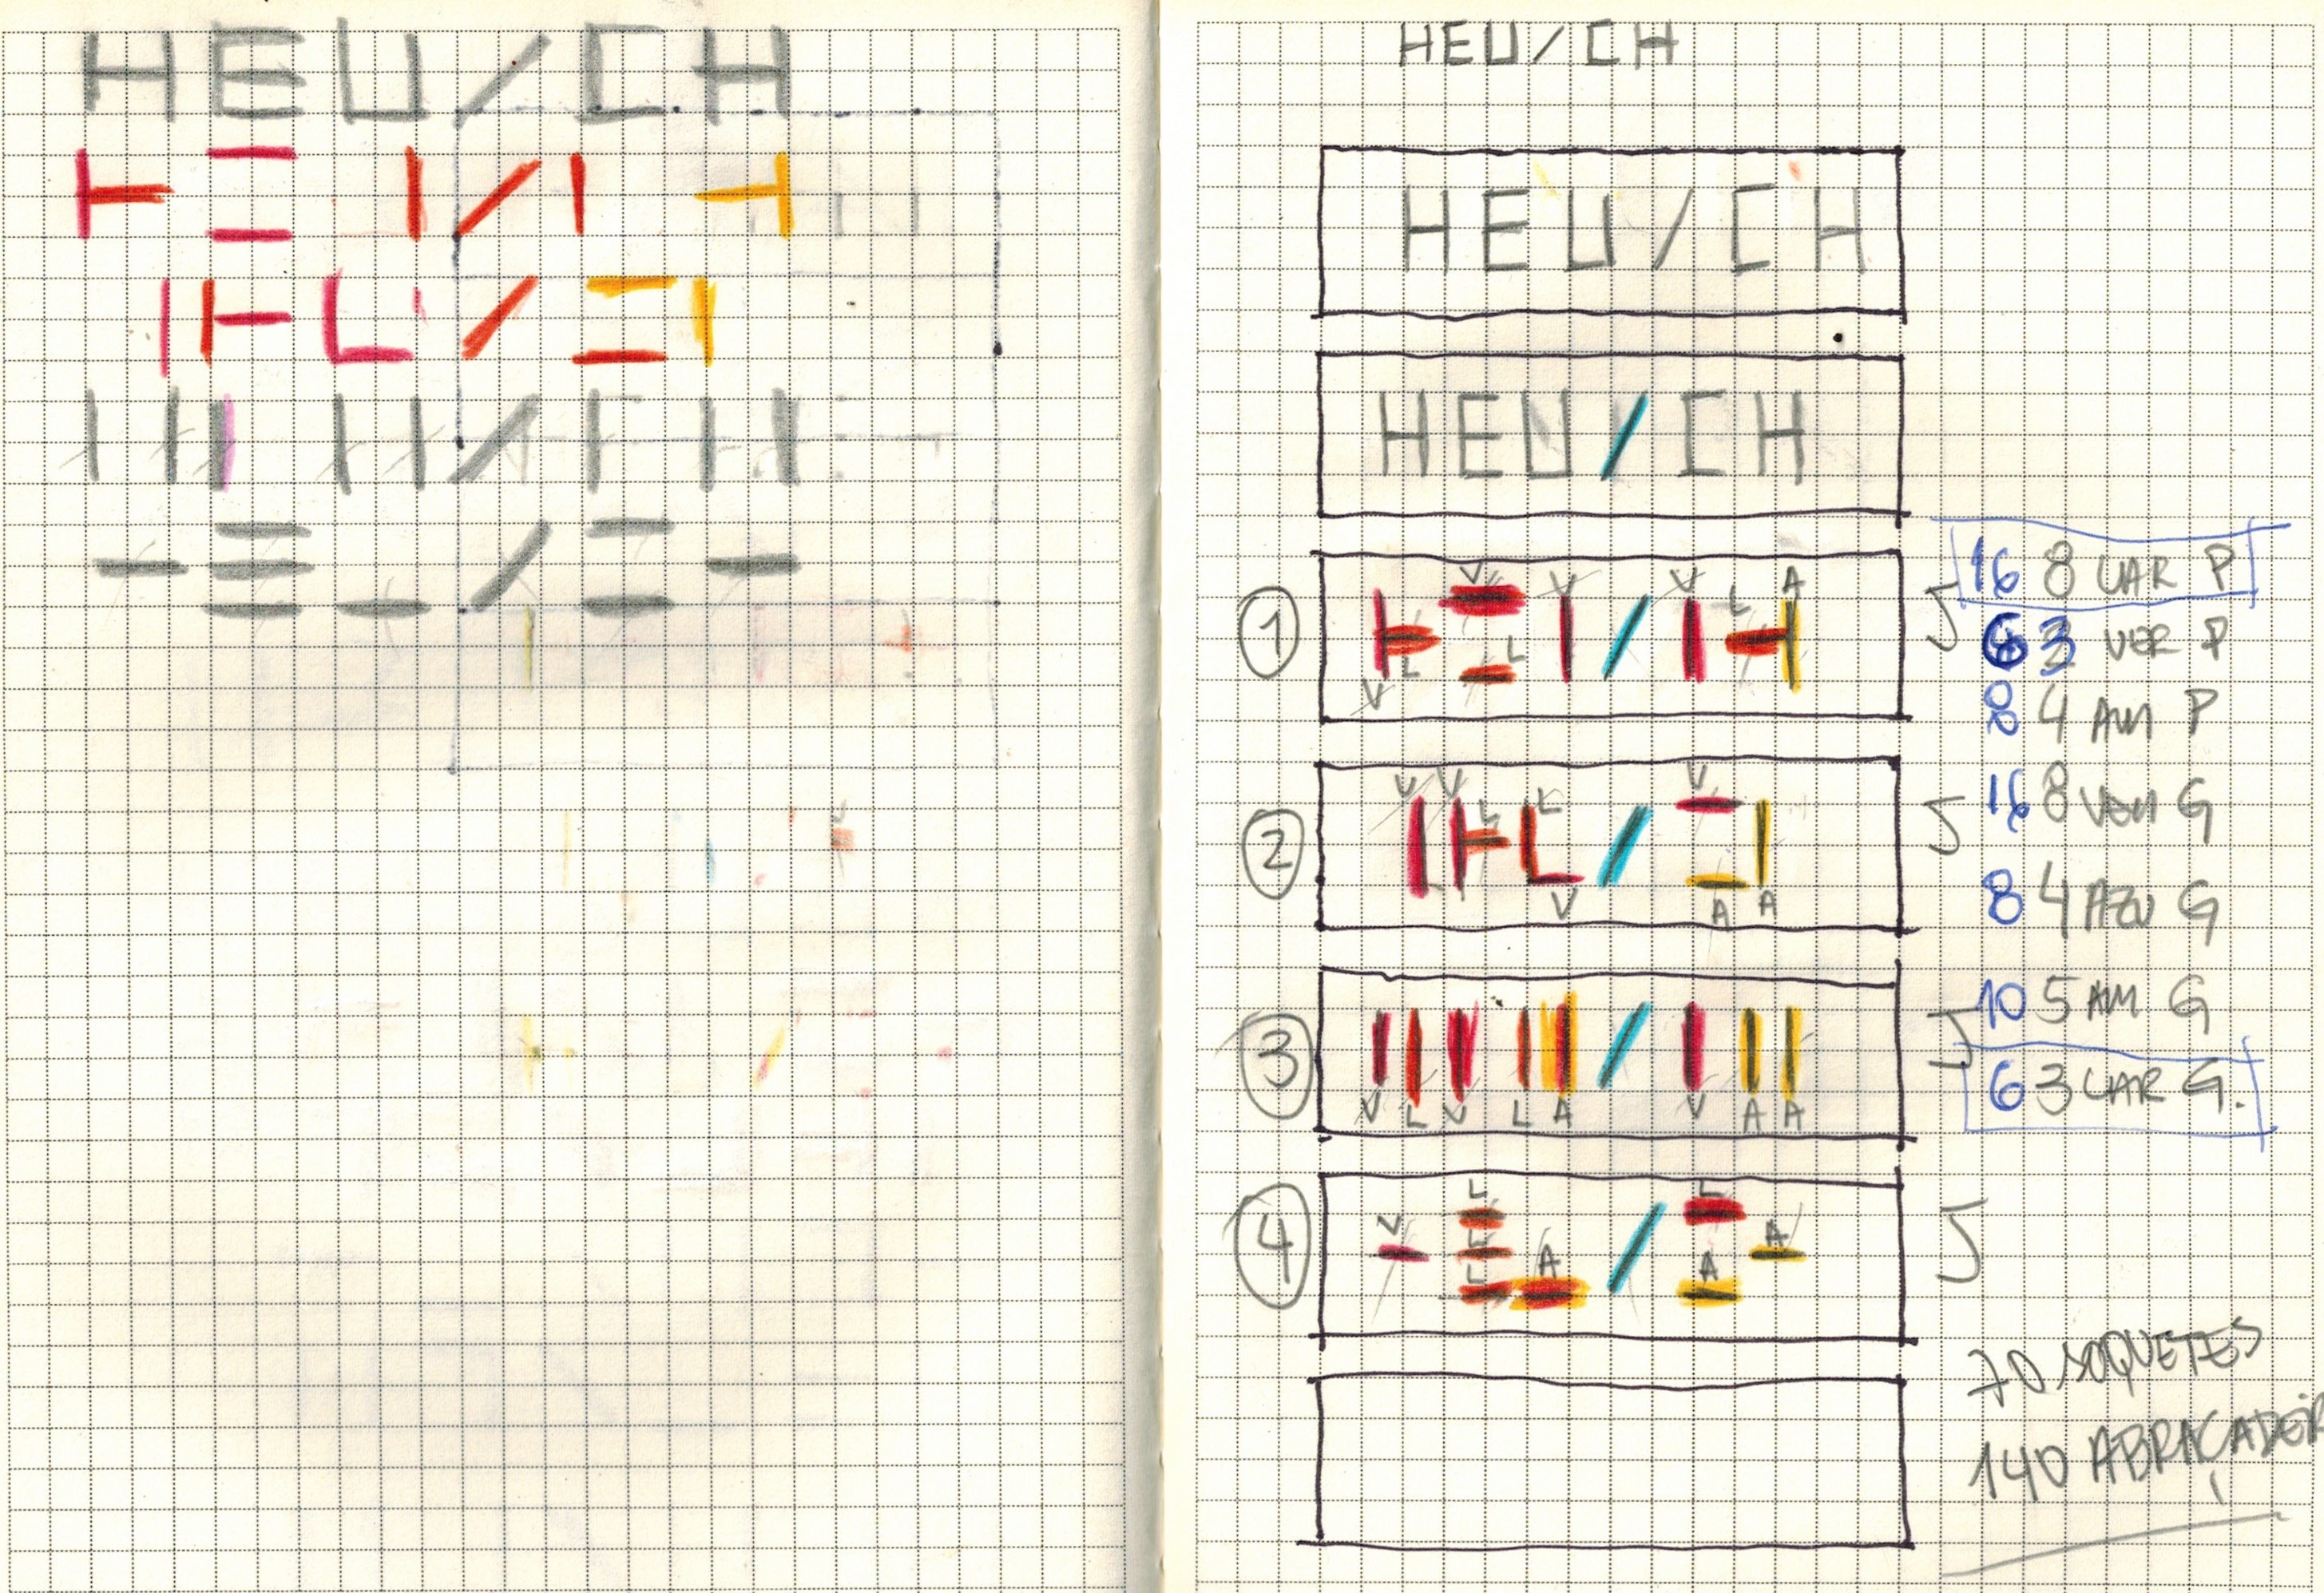 HEU/CH
HEU/CH
HEU/CH
HEU/CH
1
V V V L A
L L
V
2
V V L L V
V A A
3
V L V L A V A A
4
V L L A
L A
L A
16 8 LAR P
6 3 VER P
8 4 AM P
16 8 VERM G
8 4 AZU G
10 5 AM G
6 3 LAR G.
70 SOQUETES
140 ABRAÇADEIR